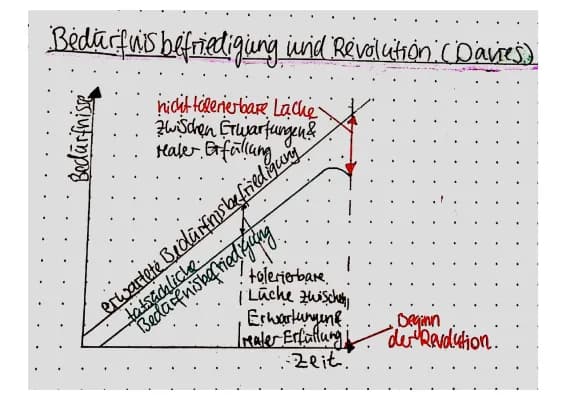 Bedürfnisbefriedigung und Revolution (Davies)
Bedürfnisse
nicht tolerierbare Lücke
zwischen Erwartungen &
realer Erfüllung
erwartete Bedürfnisbefriedigung
tatsächliche
Bedürfnisbefriedigung
tolerierbare
Lücke zwischen
Erwartungen &
realer Erfüllung
Beginn
der Revolution
Zeit